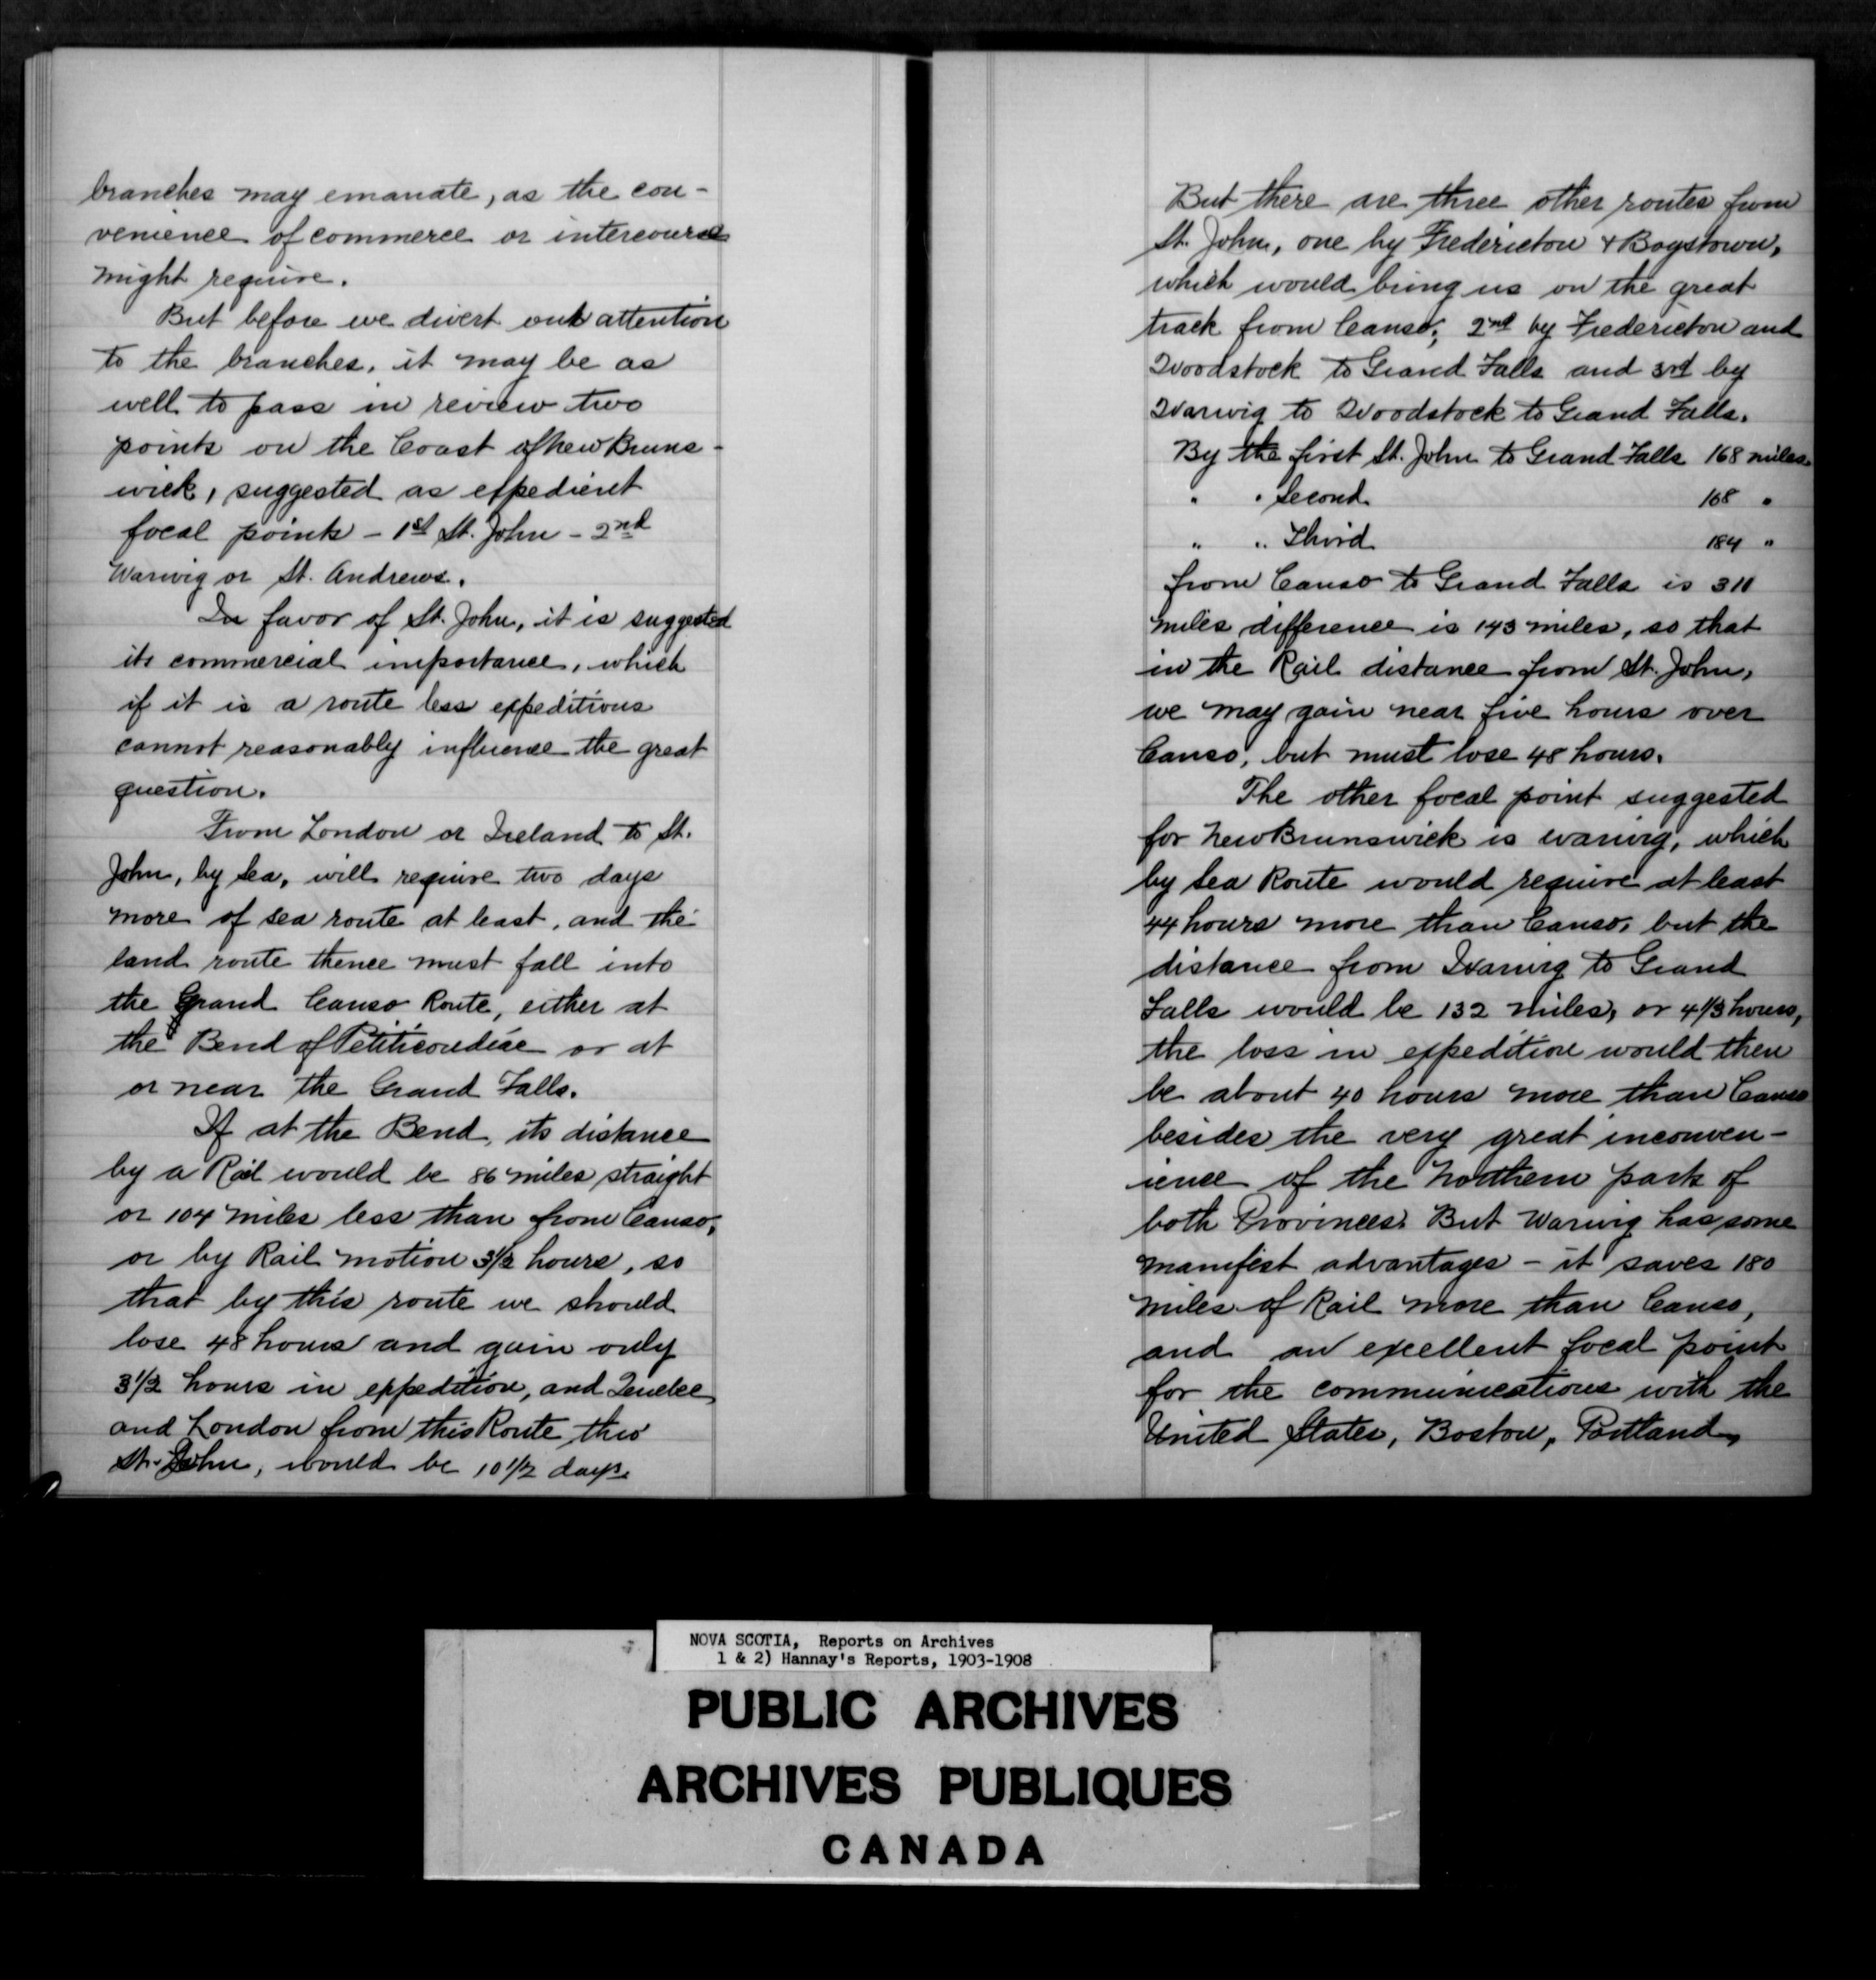 branches may emanate, as the con-
venience of commerce or intercourse
might require.
But before we divert our attention
to the branches, it may be as
well to pass in review two
points on the Coast of New Bruns-
wick, suggested as expedient
focal points - 1st St. John - 2nd
Warwig or St. Andrews.
In favor of St. John, it is suggested
its commercial importance, which
if it is a route less expeditious
cannot reasonably influence the great
question.
From London or Ireland to St.
John, by Sea, will require two days
more of sea route at least, and the
land route thence must fall into
the Grand Canso Route, either at
the Bend of Petiticondiac or at
or near the Grand Falls.
If at the Bend, its distance
by a Rail would be 86 miles straight
or 104 miles less than from Canso,
or by Rail motion 3½ hours, so
that by this route we should
lose 48 hours and gain only
3 1/2 hours in expedition, and Quebec
and London from this Route thro
St. John, would be 10 1/2 days.
But there are three other routes from
St. John, one by Fredericton & Boystown,
which would bring us on the great
track from Canso; 2nd by Fredericton and
Woodstock to Grand Falls and 3rd by
Warwig to Woodstock to Grand Falls.
By the first St. John to Grand Falls 168 miles.
" " Second 168 "
" " Third 184 "
from Canso to Grand Falls is 311
miles difference is 143 miles, so that
in the Rail distance from St. John,
we may gain near five hours over
Canso, but must lose 48 hours.
The other focal point suggested
for New Brunswick is warwig, which
by Sea Route would require at least
44 hours more than Canso, but the
distance from Warwig to Grand
Falls would be 132 miles, or 4 1/3 hours,
the loss in expedition would then
be about 40 hours more than Canso
besides the very great inconven-
ience of the Northern part of
both Provinces. But Warwig has some
manifest advantages - it saves 180
miles of Rail more than Canso,
and an excellent focal point
for the communications with the
United States, Boston, Portland,
NOVA SCOTIA, Reports on Archives
1 & 2) Hannay's Reports, 1903-1908
PUBLIC ARCHIVES
ARCHIVES PUBLIQUES
CANADA